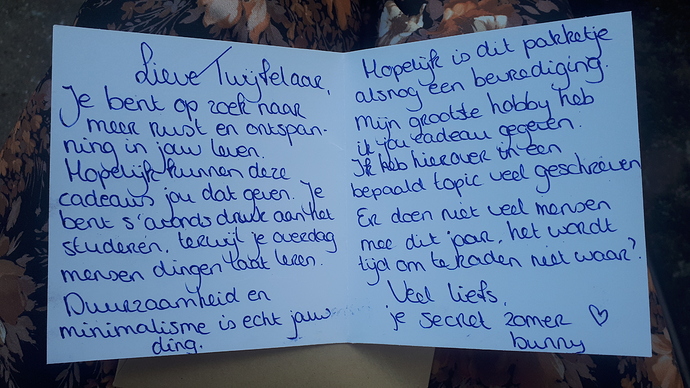 Lieve Twijfelaar,
Je bent op zoek naar
meer rust en ontspan-
ning in jouw leven.
Hopelijk kunnen deze
cadeaus jou dat geven. Je
bent s'avonds druk aan het
studeren, terwijl je overdag
mensen dingen laat leren.
Duurzaamheid en
minimalisme is echt jouw
ding.
Hopelijk is dit pakketje
alsnog een bevrediging.
Mijn grootste hobby heb
ik jou cadeau gegeven.
Ik heb hierover in een
bepaald topic veel geschreven
Er doen niet veel mensen
mee dit jaar, het wordt
tijd om te raden niet waar?
Veel liefs,
je secret zomer
bunny